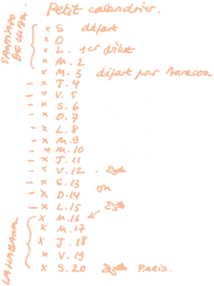 Petit calendrier.
SANTIAGO DE CUBA.
x S départ
x D
x L. 1er
x M. 2
x M. 3 départ pour Baracoa
- x J. 4
- x V. 5
- x S. 6
- x D. 7
- x L. 8
- x M. 9
- x M. 10
- x J. 11
- x V. 12.
- x S. 13
- x D. 14 ou
- x L. 15
LA HABANA
x M. 16
x M. 17
x J. 18
x V. 19
x S. 20 PARIS.